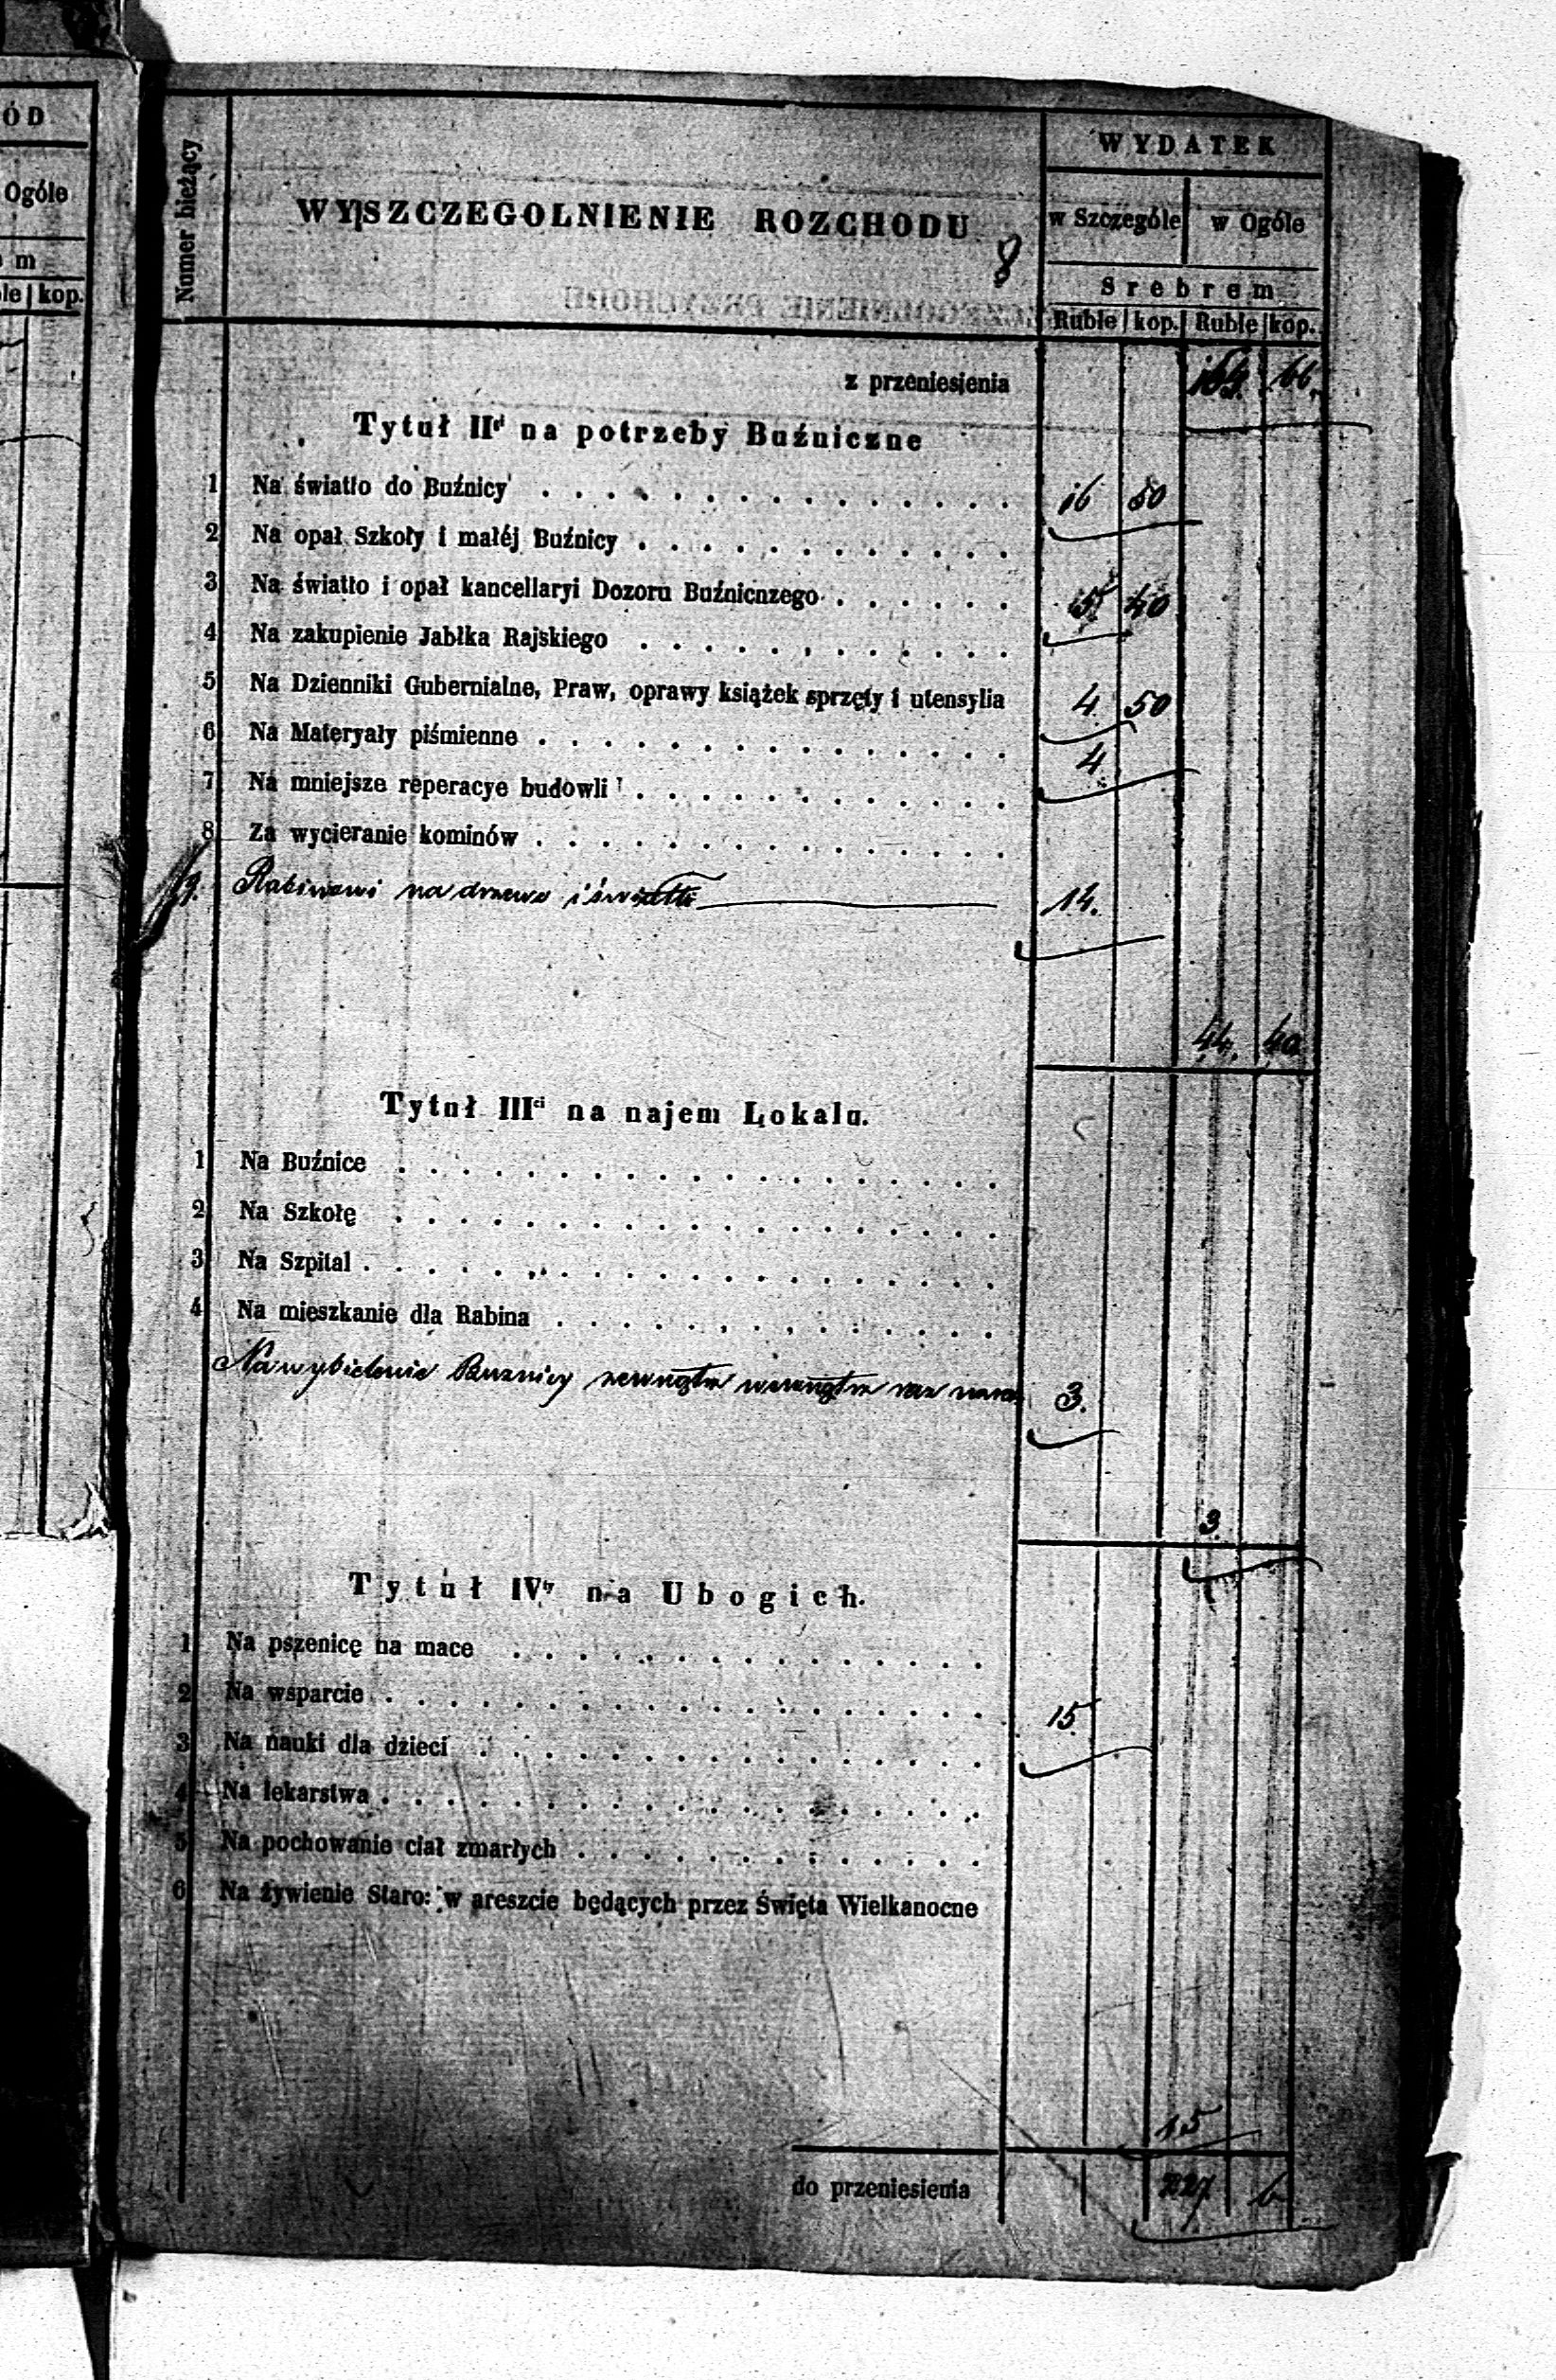 ÓD
Ogóle
m
le kop.
Numer bieżący
WYSZCZEGOLNIENIE ROZCHODU
8
WYDATEK
w Szczególe w Ogóle
Srebrem
Ruble kop. Ruble kop.
z przeniesienia 164. 66.
Tytuł IIgi na potrzeby Buźniczne
1 Na światło do Buźnicy 16 50
2 Na opał Szkoły i małéj Buźnicy
3 Na światło i opał kancellaryi Dozoru Buźnicnzego 5 40
4 Na zakupienie Jabłka Rajskiego
5 Na Dzienniki Gubernialne, Praw, oprawy książek sprzęty i utensylia 4. 50
6 Na Materyały piśmienne 4.
7 Na mniejsze reperacye budowli
8 Za wycieranie kominów
9. Rabinowi na drzewo i światło 14.
44. 40
Tytuł IIIci na najem Lokalu.
1 Na Buźnice
2 Na Szkołę
3 Na Szpital
4 Na mieszkanie dla Rabina
Na wybielenie Buznicy zewnątrz wewnątrz raz 3.
3.
Tytuł IVty na Ubogich.
1 Na pszenicę na mace
2 Na wsparcie 15
3 Na nauki dla dzieci
4 Na lekarstwa
5 Na pochowanie ciał zmarłych
6 Na żywienie Staro: w areszcie będących przez Święta Wielkanocne
15
do przeniesienia 227 6